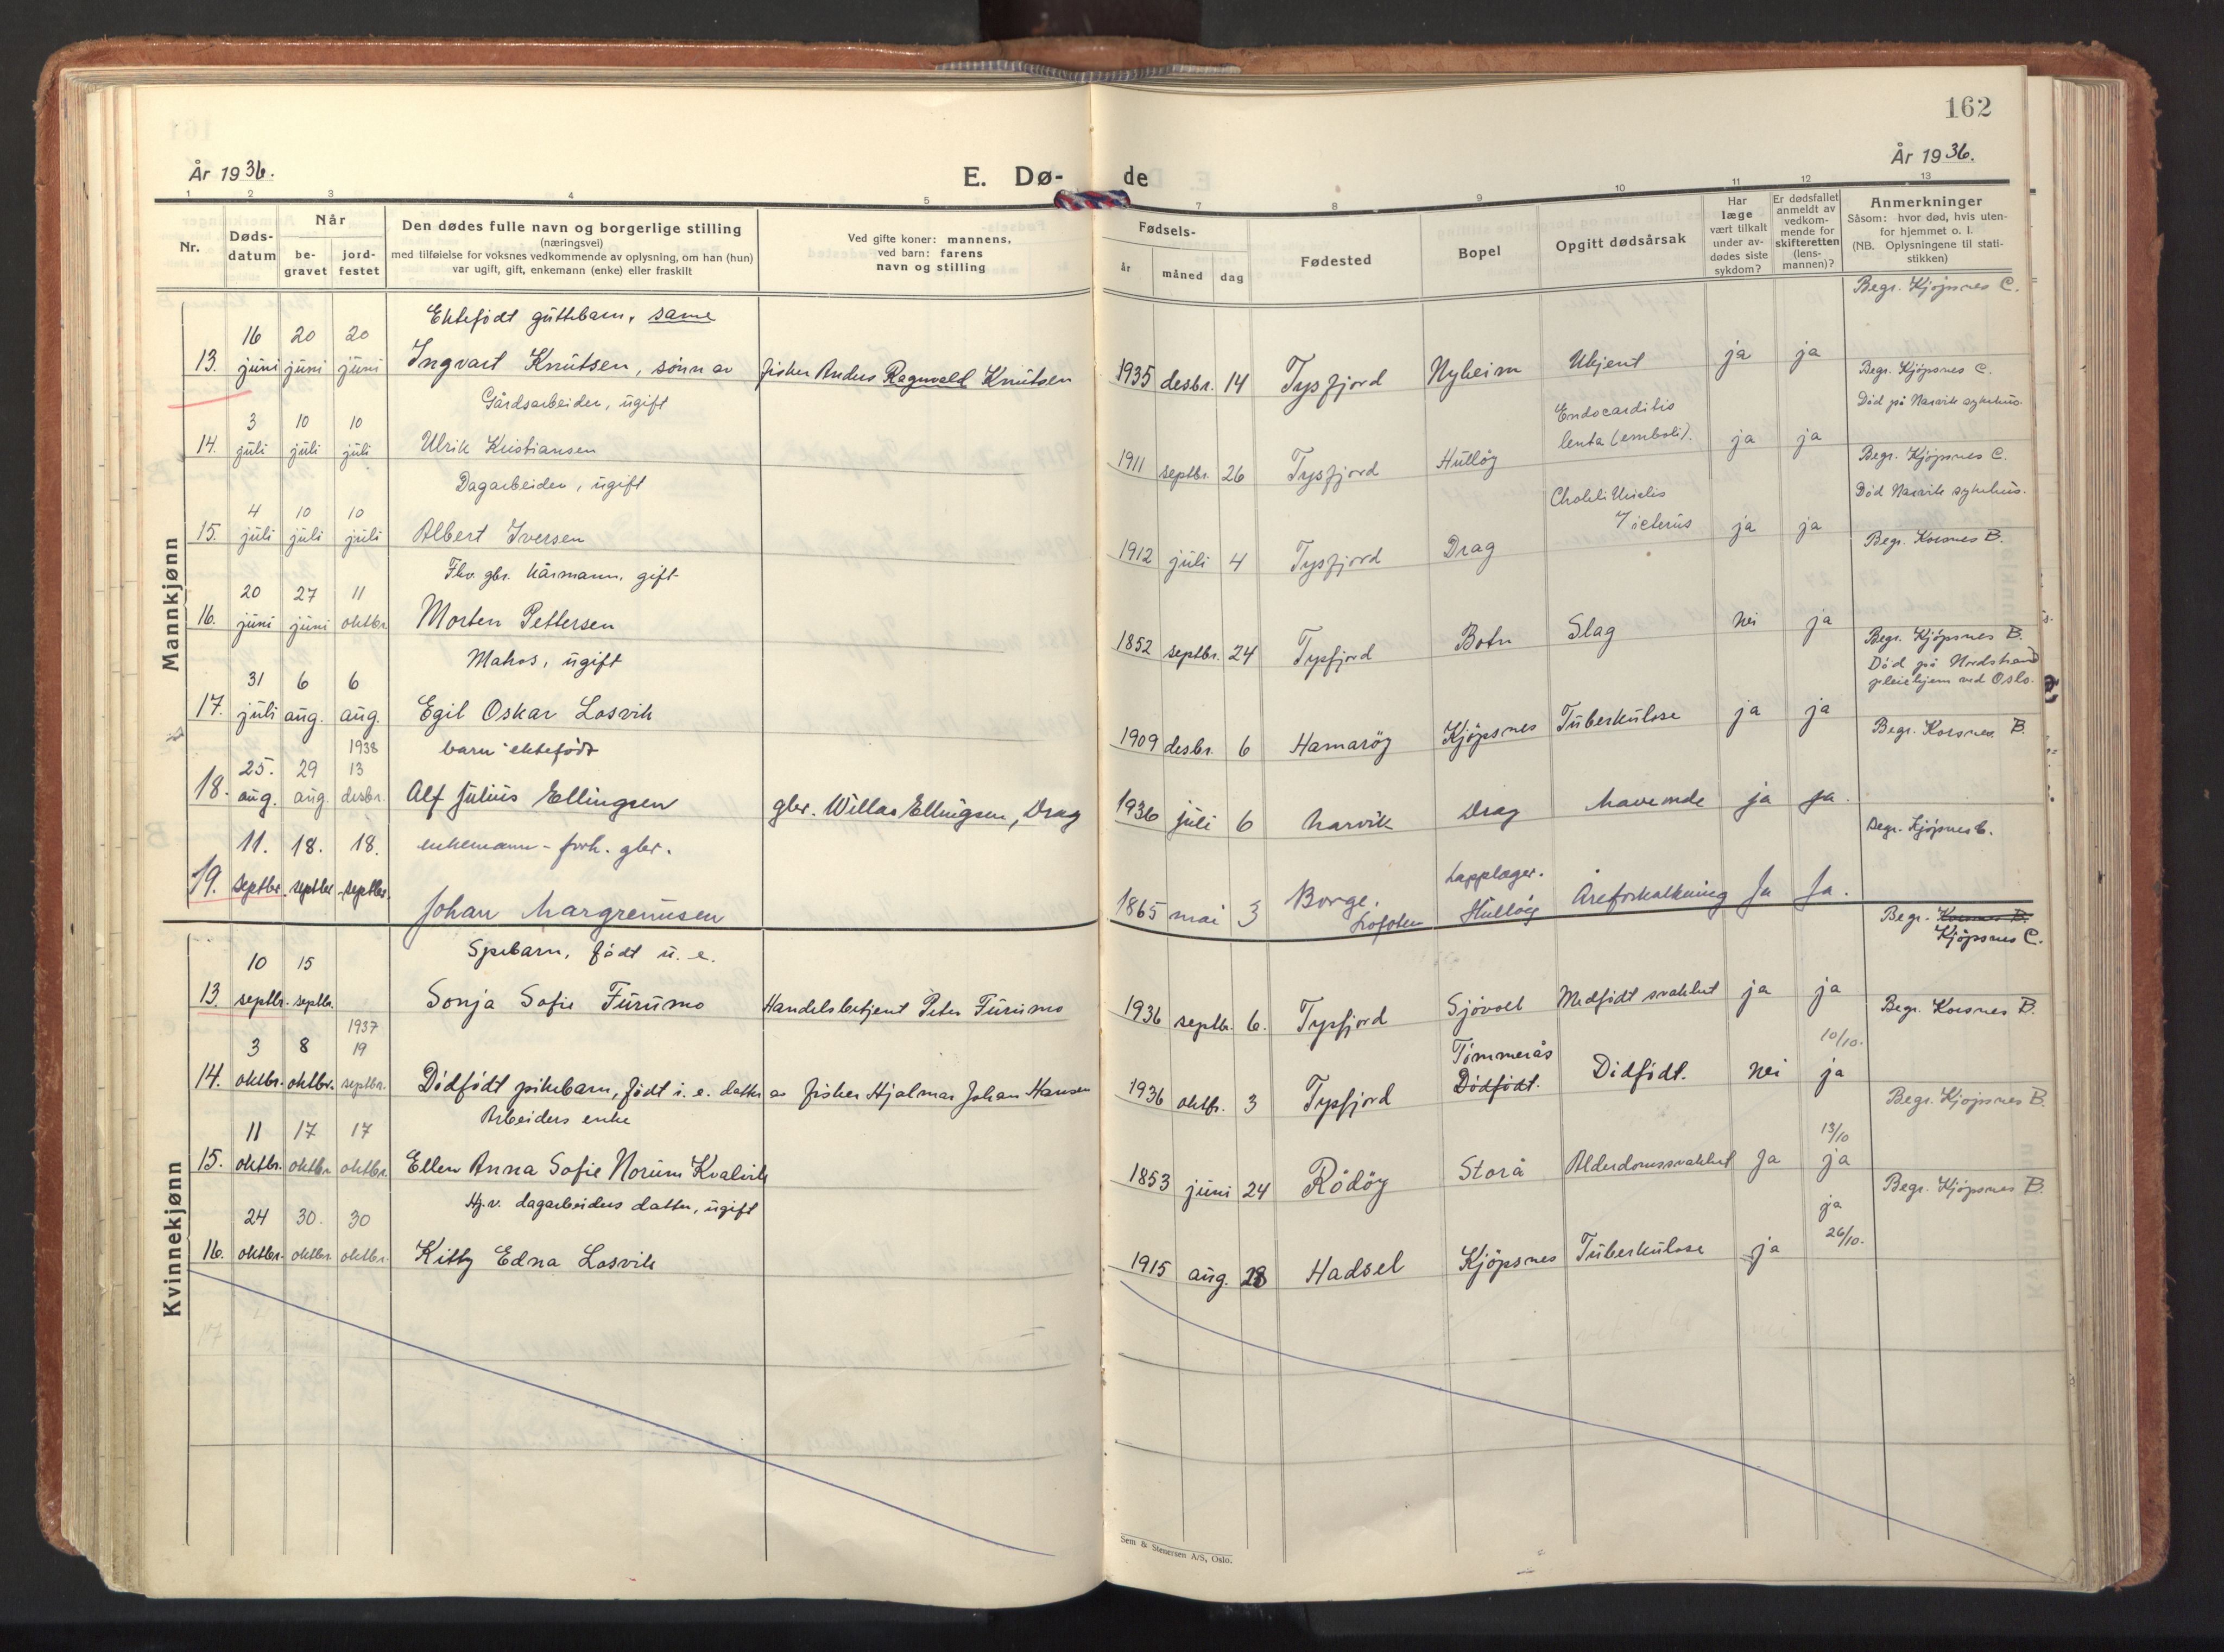 162
År 1936.
E. Dø-
de
År 1936.
1 2 3 4 5
7 8 9 10 11 12 13
Nr.
Døds-
datum
Når
be-
gravet
jord-
festet
Den dødes fulle navn og borgerlige stilling
(næringsvei)
med tilføielse for voksnes vedkommende av oplysning, om han (hun)
var ugift, gift, enkemann (enke) eller fraskilt
Ved gifte koner: mannens,
ved barn: farens
navn og stilling
Fødsels-
år måned dag
Fødested
Bopel
Opgitt dødsårsak
Har
læge
vært tilkalt
under av-
dødes siste
sykdom?
Er dødsfallet
anmeldt av
vedkom-
mende for
skifteretten
(lens-
mannen)?
Anmerkninger
Såsom: hvor død, hvis uten-
for hjemmet o. l.
(NB. Oplysningene til stati-
stikken)
Mannkjønn
Ektefødt guttebarn, same
Begr. Kjøpsnes C.
16 20 20
13. juni juni juni Ingvart Knutsen, sønn av fisker Anders Ragnvald Knutsen 1935 desbr. 14 Tysfjord Nyheim Ukjent ja ja
Gårdsarbeider, ugift
Begr. Kjøpsnes C.
Død på Narvik sykehus.
3 10 10
Endocarditis
14. juli juli juli Ulrik Kristiansen 1911 septbr. 26 Tysfjord Hulløy lenta (emboli). ja ja
Dagarbeider, ugift
Begr. Kjøpsnes C.
Død Narvik sykehus.
4 10 10
15. juli juli juli Albert Iversen 1912 juli 4 Tysfjord Drag Icterus ja ja
gbr. kårmann, gift
Begr. Korsnes B.
20 27 11
16. juni juni oktbr Morten Pettersen 1852 septbr. 24 Tysfjord Botn Slag nei ja
Matros, ugift
Begr. Kjøpsnes B.
Død på Nordstrand
pleiehjem ved Oslo.
31 6 6
17. juli aug. aug. Egil Oskar Losvik 1909 desbr. 6 Hamarøy Kjøpsnes Tuberkulose ja ja
barn ektefødt
Begr. Korsnes B.
1938
25. 29 13
18. aug. aug. desbr. Alf Julius Ellingsen gbr. Willas Ellingsen, Drag 1936 juli 6 Narvik Drag ja ja.
enkemann - forh. gbr.
Begr. Kjøpsnes C.
11. 18. 18.
Lapplæger.
19. septbr. septbr. septbr. Johan Margrenusen 1865 mai 3 Borge, Lofoten Hulløy Åreforkalkning Ja Ja.
Kvinnekjønn
Spebarn, født u. e.
Begr. Korsnes B.
Kjøpsnes C.
10 15
13. septbr. septbr. Sonja Sofie Furumo Handelsbetjent Peter Furumo 1936 septbr. 6. Tysfjord Sjøvoll Medfødt svakhet ja ja
Begr. Korsnes B.
1937
3 8 19
Tømmerås
10/10.
14. oktbr. oktbr. septbr. Dødfødt pikebarn, født i. e. datter av fisker Hjalmar Johan Hansen 1936 oktbr. 3 Tysfjord Dødfødt. Dødfødt. nei ja
Arbeiders enke
Begr. Kjøpsnes B.
11 17 17
13/10
15. oktbr. oktbr oktbr. Ellen Anna Sofie Norum Kvalvik 1853 juni 24 Rødøy Storå Alderdomssvakhet Ja ja
Hj.v. dagarbeiders datter, ugift
Begr. Kjøpsnes B.
24 30. 30
ja
26/10.
16. oktbr. oktbr. oktbr. Kitty Edna Losvik 1915 aug. 28 Hadsel Kjøpsnes Tuberkulose ja
17
Sem & Stenersen A/S, Oslo.